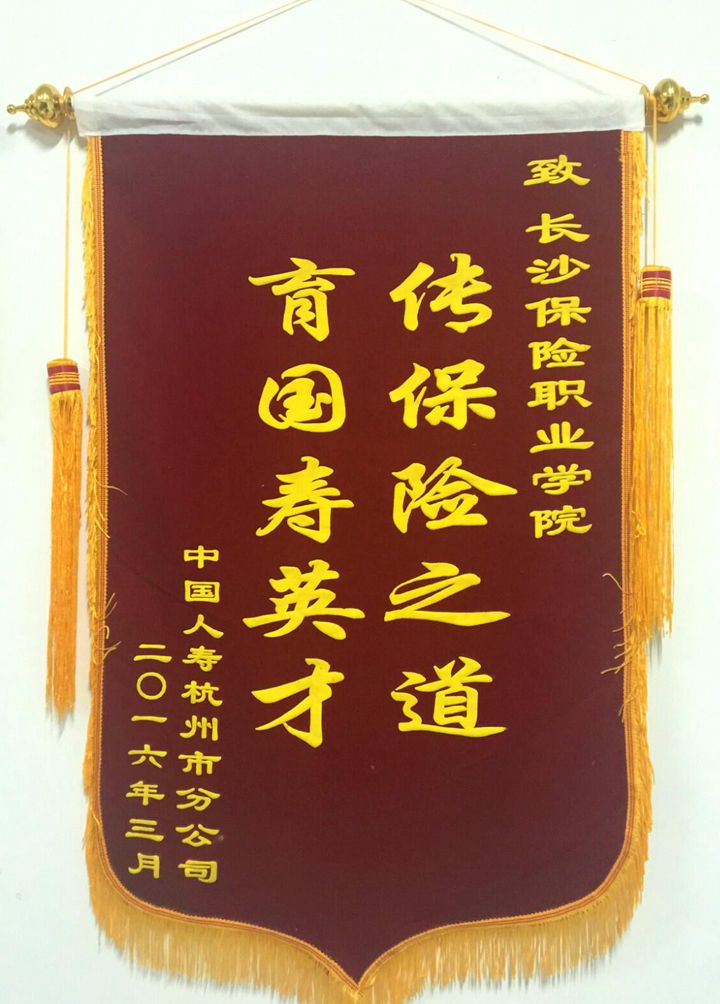 致 长沙保险职业学院
传保险之道
育国寿英才
中国人寿杭州市分公司
二〇一六年三月